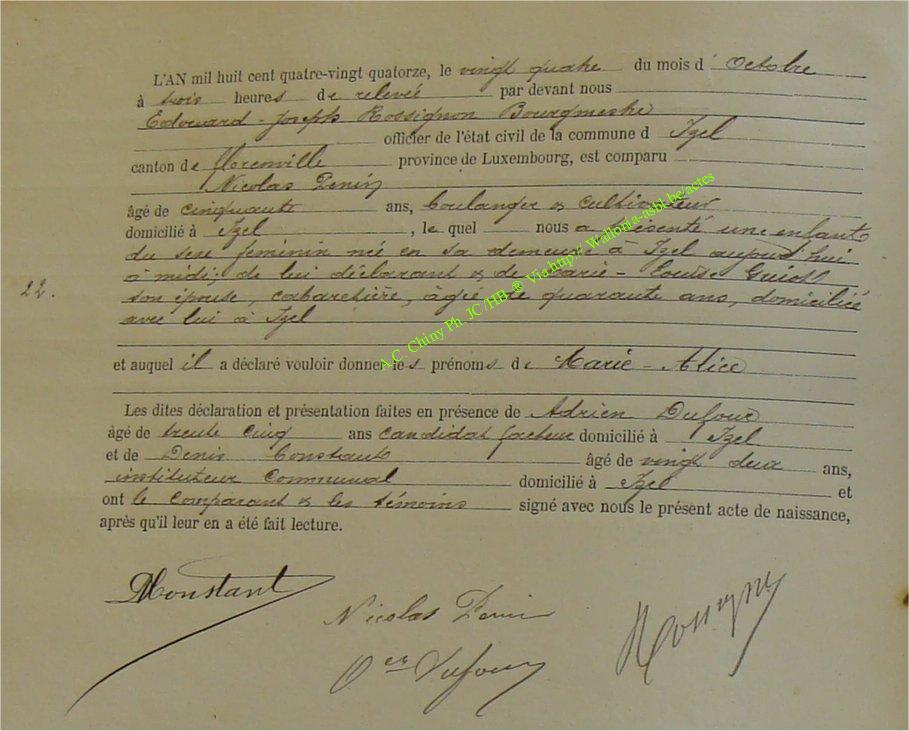 L'AN mil huit cent quatre-vingt quatorze, le vingt quatre du mois d' Octobre
à trois heures de relevée par devant nous
Edouard-Joseph Rossignon Bourgmestre
officier de l'état civil de la commune d Izel
canton de Florenville province de Luxembourg, est comparu
Nicolas Denis
âgé de cinquante ans, boulanger & cultivateur
domicilié à Izel, le quel nous a présenté une enfant
du sexe féminin né en sa demeure à Izel aujourd'hui
à midi, de lui déclarant & de Marie-Louise
22.
son épouse, cabaretière, âgée de quarante ans, domiciliée
avec lui à Izel
et auquel il a déclaré vouloir donner les prénoms de Marie-Alice
Les dites déclaration et présentation faites en présence de Adrien Dufour
âgé de trente cinq ans candidat facteur domicilié à Izel
et de Denis Constant âgé de vingt deux ans,
instituteur communal domicilié à Izel et
ont le comparant & les témoins signé avec nous le présent acte de naissance,
après qu'il leur en a été fait lecture.
A.C. Chiny Ph. JC/HB ® Via http:// Wallonia-asbl.be/actes
Constant
Nicolas Denis
Dufour